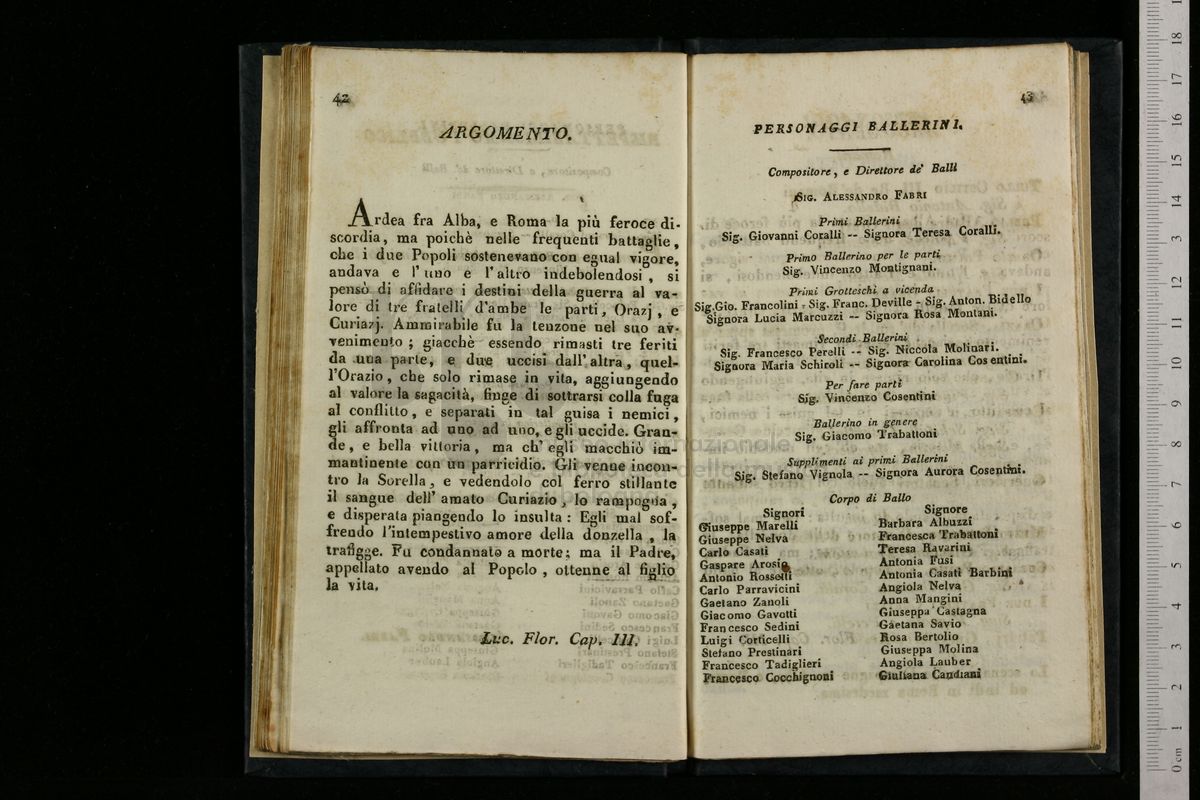 42
ARGOMENTO.
Ardea fra Alba, e Roma la più feroce di-
scordia, ma poichè nelle frequenti battaglie,
che i due Popoli sostenevano con egual vigore,
andava e l'uno e l'altro indebolendosi, si
pensò di affidare i destini della guerra al va-
lore di tre fratelli d'ambe le parti, Orazj, e
Curiazj. Ammirabile fu la tenzone nel suo av-
venimento; giacchè essendo rimasti tre feriti
da una parte, e due uccisi dall'altra, quel-
l'Orazio, che solo rimase in vita, aggiungendo
al valore la sagacità, finge di sottrarsi colla fuga
al conflitto, e separati in tal guisa i nemici,
gli affronta ad uno ad uno, e gli uccide. Gran-
de, e bella vittoria, ma ch'egli macchiò im-
mantinente con un parricidio. Gli venne incon-
tro la Sorella, e vedendolo col ferro stillante
il sangue dell'amato Curiazio, lo rampogna,
e disperata piangendo lo insulta: Egli mal sof-
frendo l'intempestivo amore della donzella, la
trafigge. Fu condannato a morte; ma il Padre,
appellato avendo al Popolo, ottenne al figlio
la vita.
Luc. Flor. Cap. III.
43
PERSONAGGI BALLERINI.
Compositore, e Direttore de' Balli
SIG. ALESSANDRO FABRI
Primi Ballerini
Sig. Giovanni Coralli -- Signora Teresa Coralli.
Primo Ballerino per le parti
Sig. Vincenzo Montignani.
Primi Grotteschi a vicenda
Sig. Gio. Francolini - Sig. Franc. Deville - Sig. Anton. Bidello
Signora Lucia Marcuzzi -- Signora Rosa Montani.
Secondi Ballerini
Sig. Francesco Perelli -- Sig. Niccola Molinari.
Signora Maria Schiroli -- Signora Carolina Cosentini.
Per fare parti
Sig. Vincenzo Cosentini
Ballerino in genere
Sig. Giacomo Trabattoni
Supplimenti ai primi Ballerini
Sig. Stefano Vignola -- Signora Aurora Cosentini.
Corpo di Ballo
Signori
Giuseppe Marelli
Giuseppe Nelva
Carlo Casati
Gaspare Arosio
Antonio Rosselli
Carlo Parravicini
Gaetano Zanoli
Giacomo Gavotti
Francesco Sedini
Luigi Corticelli
Stefano Prestinari
Francesco Tadiglieri
Francesco Cocchignoni
Signore
Barbara Albuzzi
Francesca Trabattoni
Teresa Ravarini
Antonia Fusi
Antonia Casati Barbini
Angiola Nelva
Anna Mangini
Giuseppa Castagna
Gaetana Savio
Rosa Bertolio
Giuseppa Molina
Angiola Lauber
Giuliana Candiani